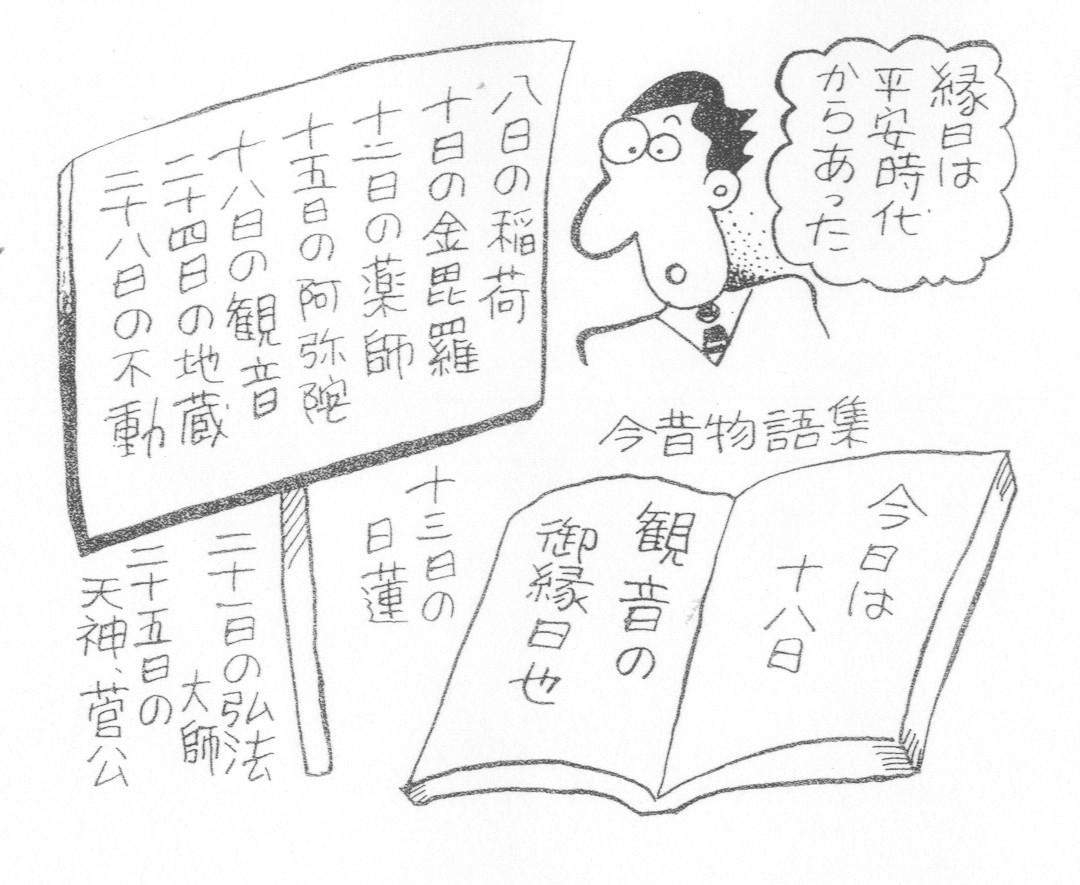 縁日は
平安時代
からあった
八日の稲荷
十日の金毘羅
十二日の薬師
十五日の阿弥陀
十八日の観音
二十四日の地蔵
二十八日の不動
十三日の
日蓮
二十一日の弘法
大師
二十五日の
天神、菅公
今昔物語集
今日は
十八日
観音の
御縁日也